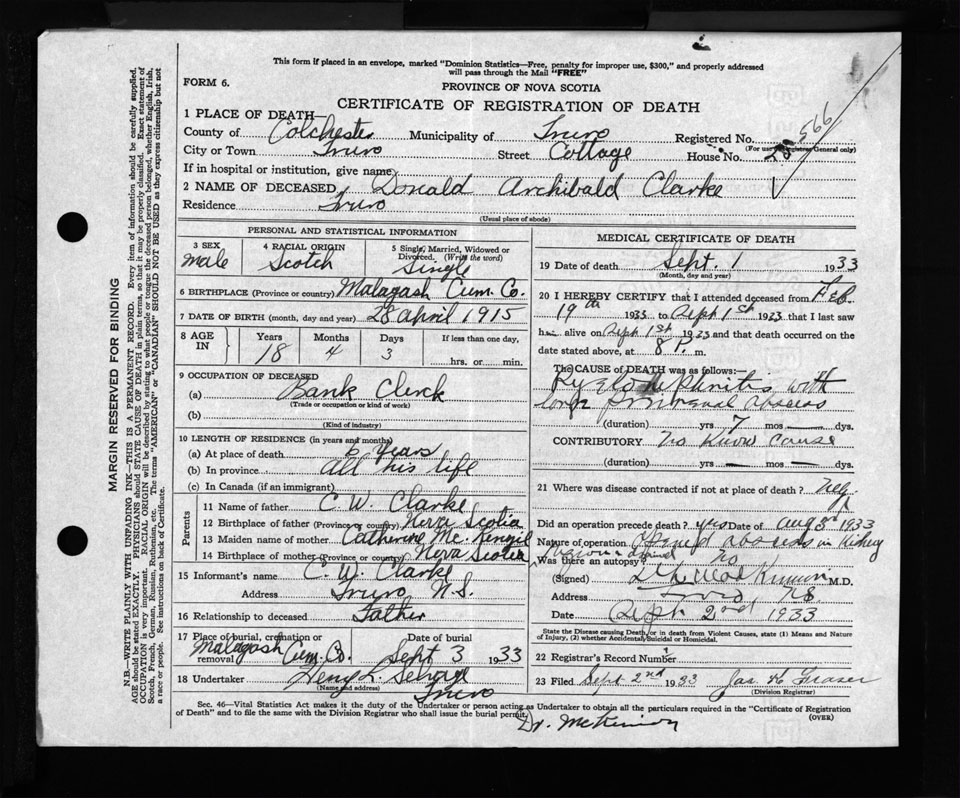 This form if placed in an envelope, marked "Dominion Statistics—Free, penalty for improper use, $300," and properly addressed
will pass through the Mail "FREE"
FORM 6.
PROVINCE OF NOVA SCOTIA
CERTIFICATE OF REGISTRATION OF DEATH
566
1 PLACE OF DEATH—
County of Colchester Municipality of Truro Registered No.
(For use of Registrar General only)
City or Town Truro Street Cottage House No.
If in hospital or institution, give name
2 NAME OF DECEASED Donald Archibald Clarke
Residence Truro
(Usual place of abode)
PERSONAL AND STATISTICAL INFORMATION
3 SEX 4 RACIAL ORIGIN 5 Single, Married, Widowed or
Divorced. (Write the word)
male Scotch Single
6 BIRTHPLACE (Province or country) Malagash Cum. Co.
7 DATE OF BIRTH (month, day and year) 28 april 1915
8 AGE IN Years Months Days If less than one day,
18 4 3 hrs. or min.
9 OCCUPATION OF DECEASED
(a) Bank Clerk
(Trade or occupation or kind of work)
(b)
(Kind of industry)
10 LENGTH OF RESIDENCE (in years and months)
(a) At place of death 6 years
(b) In province all his life
(c) In Canada (if an immigrant)
Parents
11 Name of father C. W. Clarke
12 Birthplace of father (Province or country) Nova Scotia
13 Maiden name of mother Catherine Mc.
14 Birthplace of mother (Province or country) Nova Scotia
15 Informant's name C. W. Clarke
Address Truro N.S.
16 Relationship to deceased Father
17 Place of burial, cremation or removal Date of burial
Malagash Cum. Co. Sept 3 1933
18 Undertaker Henry L.
(Name and address) Truro
MEDICAL CERTIFICATE OF DEATH
19 Date of death Sept. 1 1933
(Month, day and year)
20 I HEREBY CERTIFY that I attended deceased from Feb.
19th 1933 to Sept 1st 1933 that I last saw
h alive on Sept 1st 1933 and that death occurred on the
date stated above, at 8 P. m.
The CAUSE OF DEATH was as follows:—
with
abscess
(duration) yrs 7 mos — dys.
CONTRIBUTORY No Know cause
(duration) yrs — mos — dys.
21 Where was disease contracted if not at place of death?
Did an operation precede death? yes Date of aug 1933
Nature of operation opened abscess in Kidney
Was there an autopsy? no
(Signed) M.D.
Address Truro N.S.
Date Sept 2nd 1933
State the Disease causing Death, or in death from Violent Causes, state (1) Means and Nature
of Injury, (2) whether Accidental, Suicidal or Homicidal.
22 Registrar's Record Number
23 Filed Sept 2nd 1933 Jas. H. Fraser
(Division Registrar)
Sec. 46—Vital Statistics Act makes it the duty of the Undertaker or person acting as Undertaker to obtain all the particulars required in the "Certificate of Registration
of Death" and to file the same with the Division Registrar who shall issue the burial permit. (OVER)
Dr. McKinnon
MARGIN RESERVED FOR BINDING
N.B.—WRITE PLAINLY WITH UNFADING INK—THIS IS A PERMANENT RECORD. Every item of information should be carefully supplied.
AGE should be stated EXACTLY. PHYSICIANS should state CAUSE OF DEATH in plain terms, so that it may be properly classified. Exact statement of
OCCUPATION is very important. RACIAL ORIGIN will be described by stating to what people or tongue the deceased person belonged, whether English, Irish,
Scotch, French, German, Russian, Ruthenian, etc. The terms "AMERICAN" or "CANADIAN" SHOULD NOT BE USED as they express citizenship but not
a race or people. See instructions on back of Certificate.